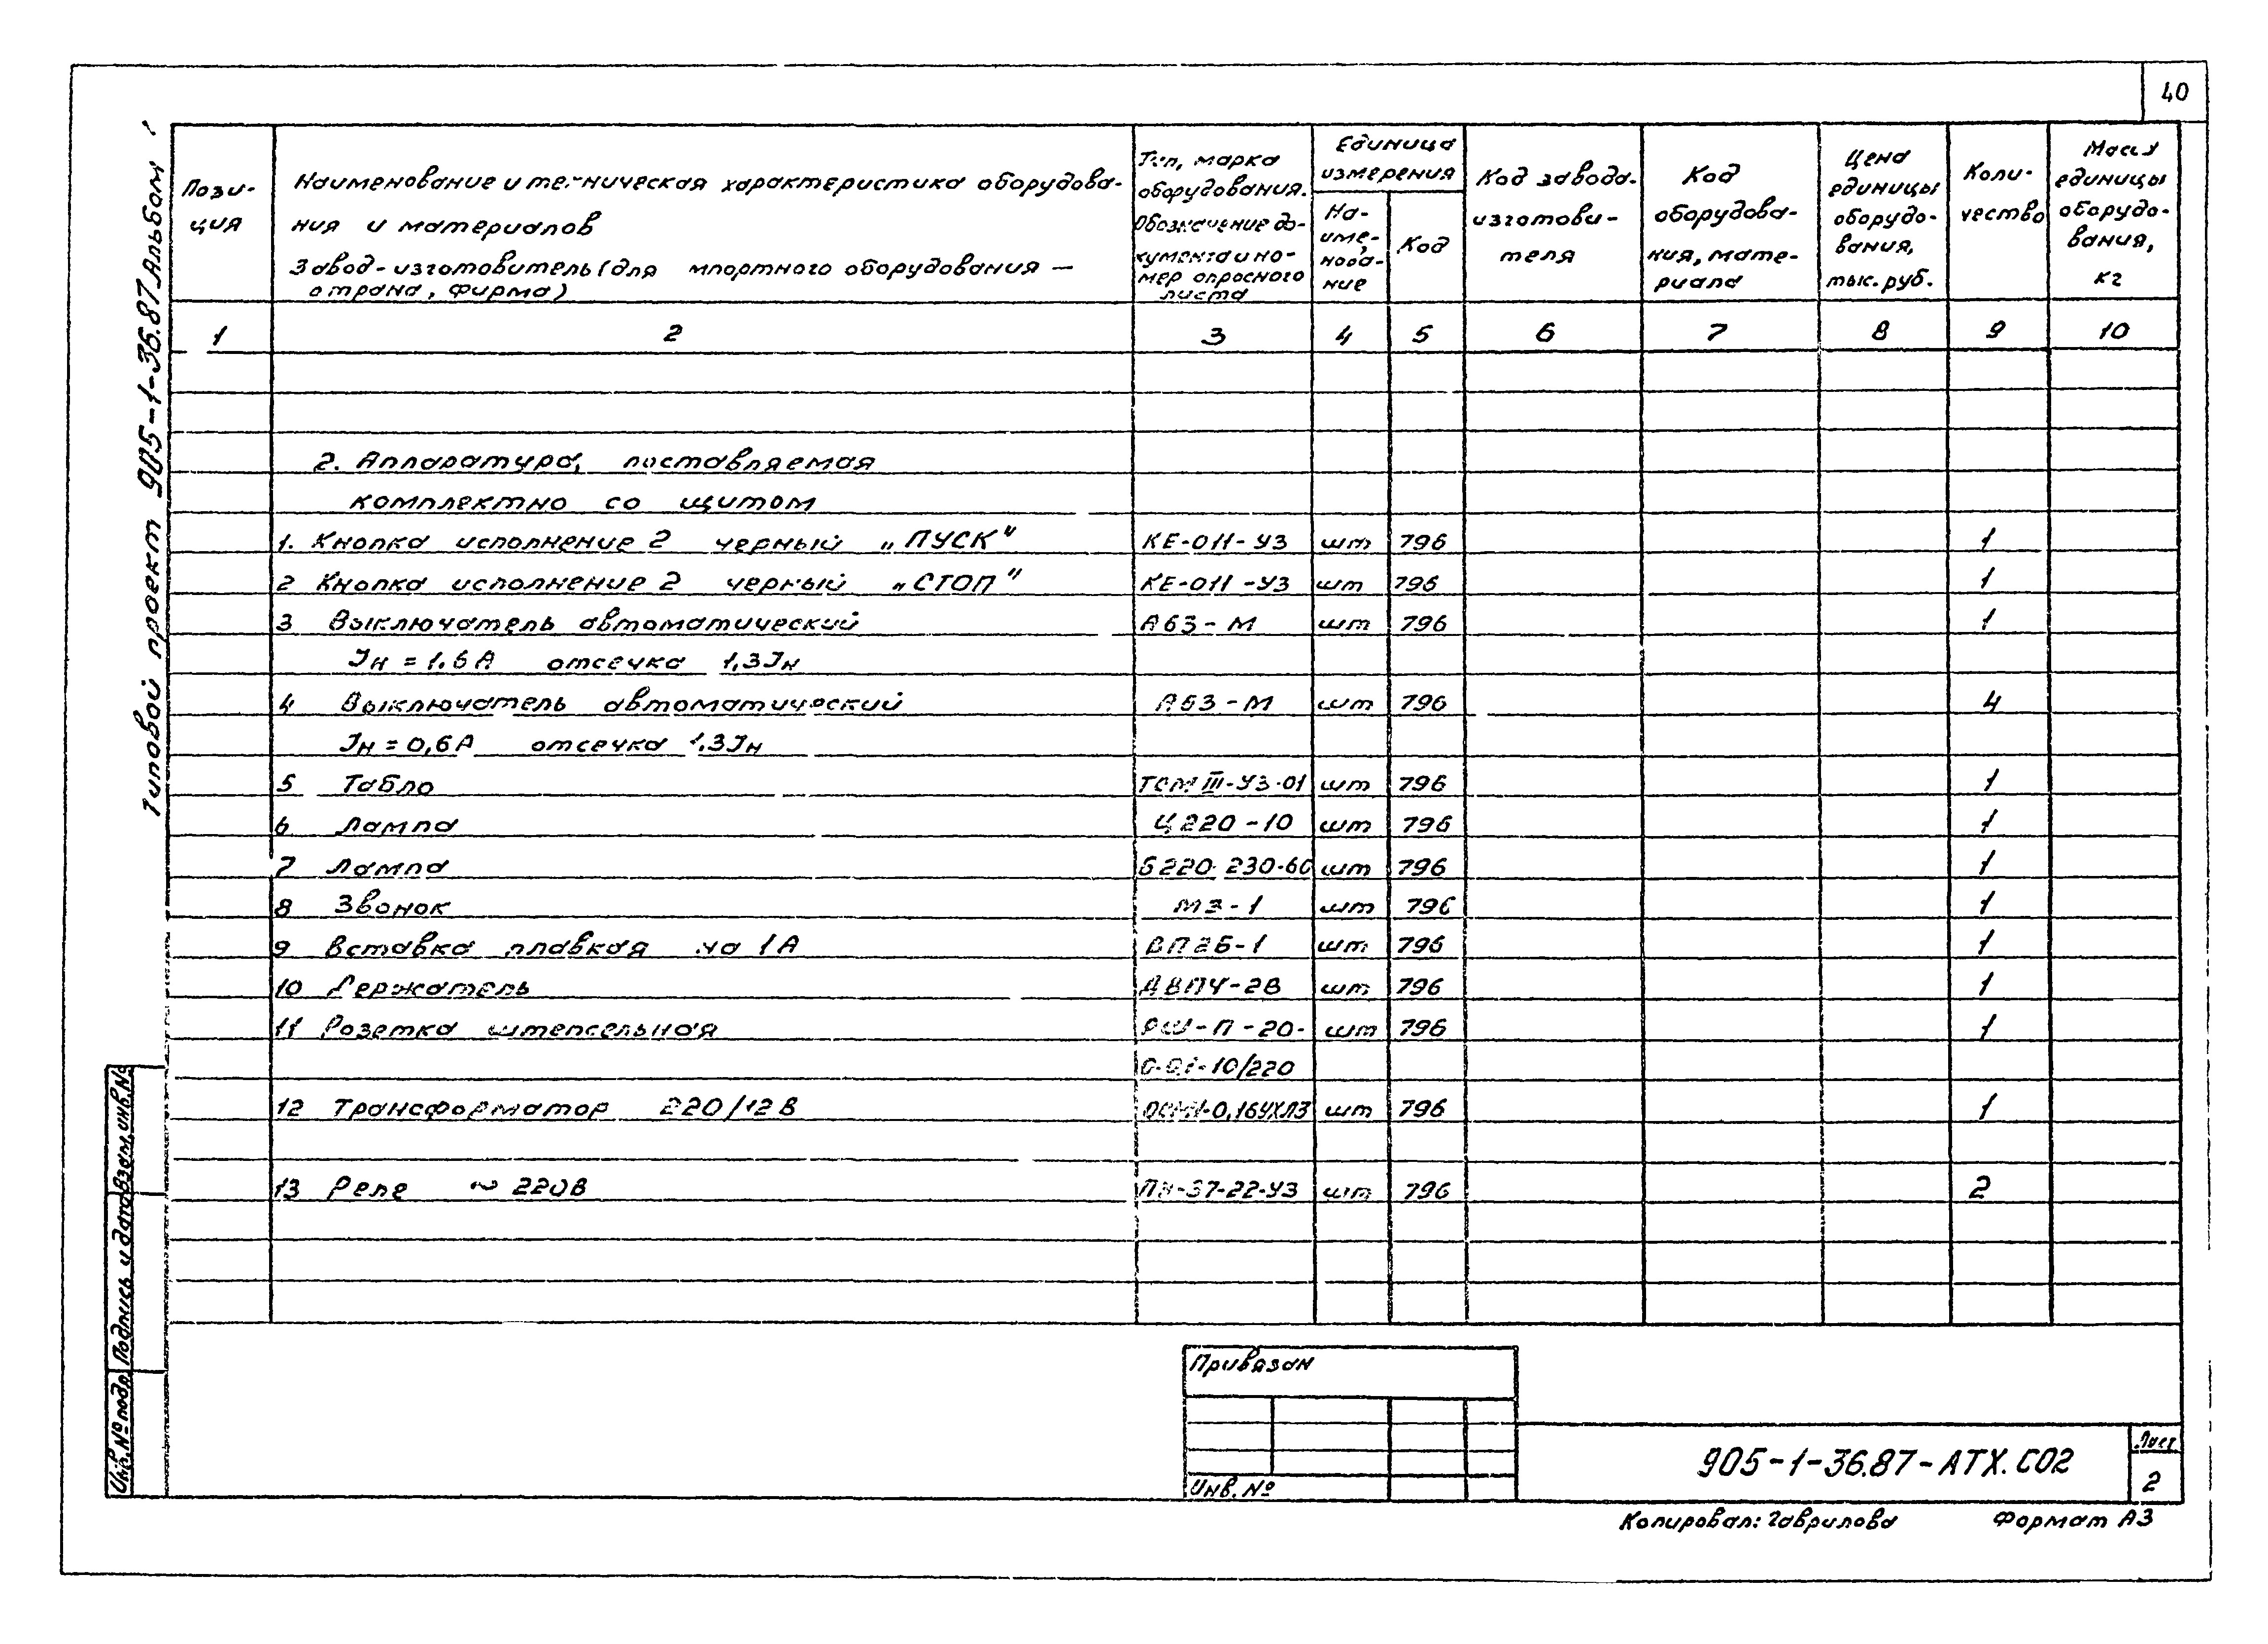 40
Типовой проект 905-1-36.87 Альбом 1
Пози-
ция
Наименование и техническая характеристика оборудова-
ния и материалов
Завод-изготовитель (для импортного оборудования —
страна, фирма)
Тип, марка
оборудования.
Обозначение до-
кумента и но-
мер опросного
листа
Единица
измерения
На-
име-
нова-
ние
Код
Код завода-
изготови-
теля
Код
оборудова-
ния, мате-
риала
Цена
единицы
оборудо-
вания,
тыс. руб.
Коли-
чество
Масса
единицы
оборудо-
вания,
кг
1 2 3 4 5 6 7 8 9 10
2. Аппаратура, поставляемая
комплектно со щитом
1. Кнопка исполнение 2 черный „ПУСК" КЕ-011-У3 шт 796 1
2 Кнопка исполнение 2 черный „СТОП" КЕ-011-У3 шт 796 1
3 Выключатель автоматический А63-М шт 796 1
Iн = 1.6А отсечка 1,3Iн
4 Выключатель автоматический А63-М шт 796 4
Iн = 0,6А отсечка 1.3Iн
5 Табло ТСМ III-У3-01 шт 796 1
6 Лампа Ц220-10 шт 796 1
7 Лампа Б220-230-60 шт 796 1
8 Звонок МЗ-1 шт 796 1
9 Вставка плавкая на 1А ВП2Б-1 шт 796 1
10 Держатель ДВП4-2В шт 796 1
11 Розетка штепсельная РШ-П-20- шт 796 1
10/220
12 Трансформатор 220/12В ОСМ1-0,16УХЛ3 шт 796 1
13 Реле ~220В 37-22-У3 шт 796 2
Привязан
Инв. №
905-1-36.87-АТХ.СО2
Лист
2
Копировал: Гаврилова
Формат А3
Взам. инв. №
Подпись и дата
Инв. № подл.